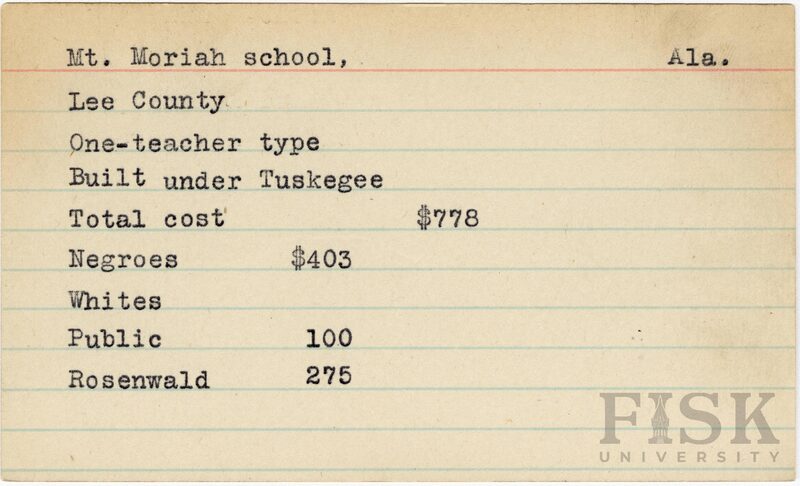 Mt. Moriah school, Ala.
Lee County
One-teacher type
Built under Tuskegee
Total cost $778
Negroes $403
Whites
Public 100
Rosenwald 275
FISK
UNIVERSITY